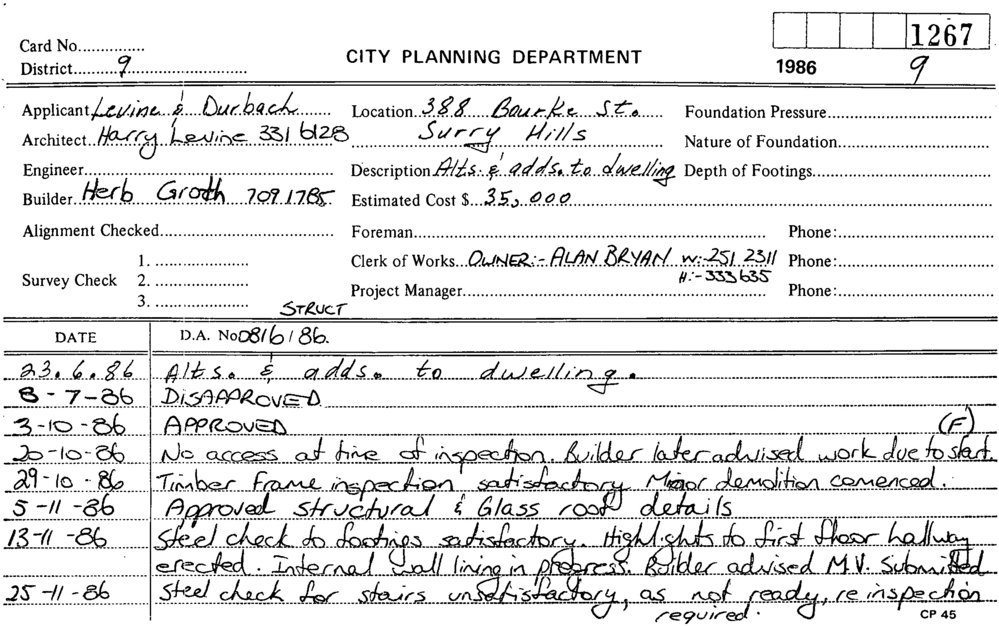 Card No...............
District.......9...........................
CITY PLANNING DEPARTMENT
1267
1986
9
Applicant Levine & Durbach
Architect Harry Levine 331 6128
Engineer
Builder Herb Groth 709 1785
Location 388 Bourke St.
Surry Hills
Description Alts. & adds. to dwelling
Estimated Cost $ 35,000
Foundation Pressure
Nature of Foundation
Depth of Footings
Alignment Checked
Survey Check
1.
2.
3.
Foreman
Phone:
Clerk of Works OWNER:- ALAN BRYAN W:-251 2311
H:-333635
Phone:
Project Manager
Phone:
STRUCT
DATE D.A. No 0816/86.
23.6.86 Alts. & adds. to dwelling.
8-7-86 DISAPPROVED
3-10-86 APPROVED (F)
20-10-86 No access at time of inspection. Builder later advised work due to start.
29-10-86 Timber Frame inspection satisfactory Minor demolition comenced.
5-11-86 Approved structural & Glass roof details
13-11-86 Steel check to footings satisfactory. Highlights to first floor hallway
erected. Internal wall lining in progress. Builder advised M.V. Submitted
25-11-86 Steel check for stairs unsatisfactory, as not ready, re inspection
required.
CP 45